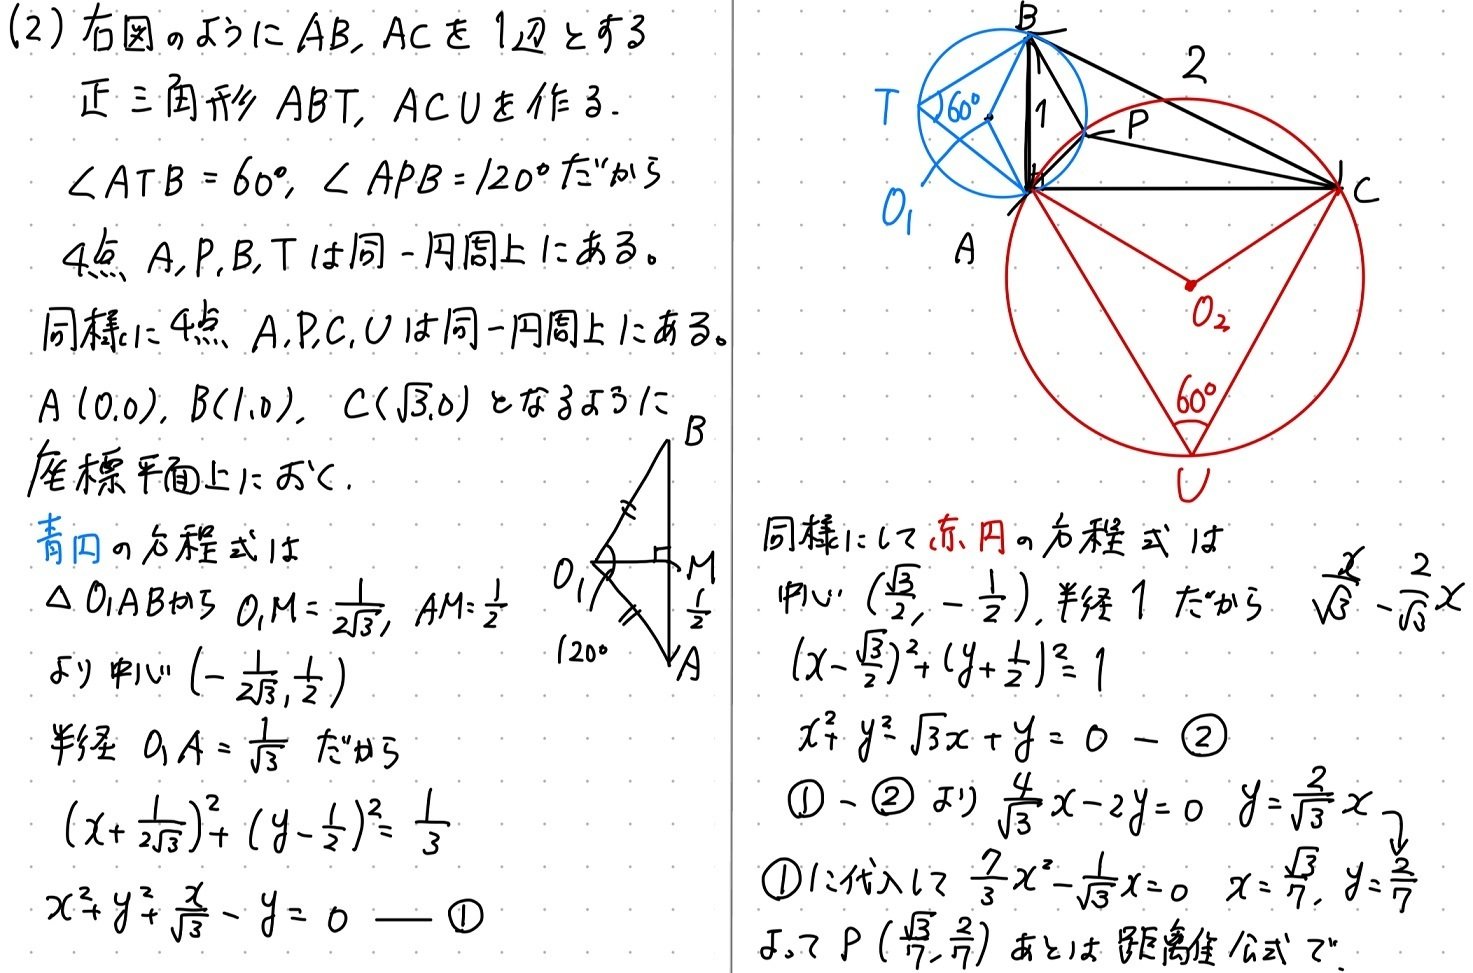 (2) 右図のようにAB, ACを1辺とする
正三角形ABT, ACUを作る.
∠ATB = 60°, ∠APB = 120°だから
4点 A, P, B, T は同一円周上にある。
同様に4点 A, P, C, U は同一円周上にある。
A (0.0), B(1.0), C(√3.0) となるように
座標平面上におく.
青円の方程式は
△O₁ABから O₁M = 1/2√3, AM = 1/2
より中心 (-1/2√3, 1/2)
半径 O₁A = 1/√3 だから
(x + 1/2√3)² + (y - 1/2)² = 1/3
x² + y² + x/√3 - y = 0 — ①
B
O₁
M
1/2
120°
A
B
2
T
60°
1
P
O₁
A
C
O₂
60°
U
同様にして赤円の方程式は
中心 (√3/2, -1/2), 半径 1 だから
x/√3 - 2/√3 x
(x - √3/2)² + (y + 1/2)² = 1
x² + y² - √3x + y = 0 — ②
① - ② より 4/√3 x - 2y = 0 y = 2/√3 x
①に代入して 7/3 x² - 1/√3 x = 0 x = √3/7, y = 2/7
よって P (√3/7, 2/7) あとは距離公式で.